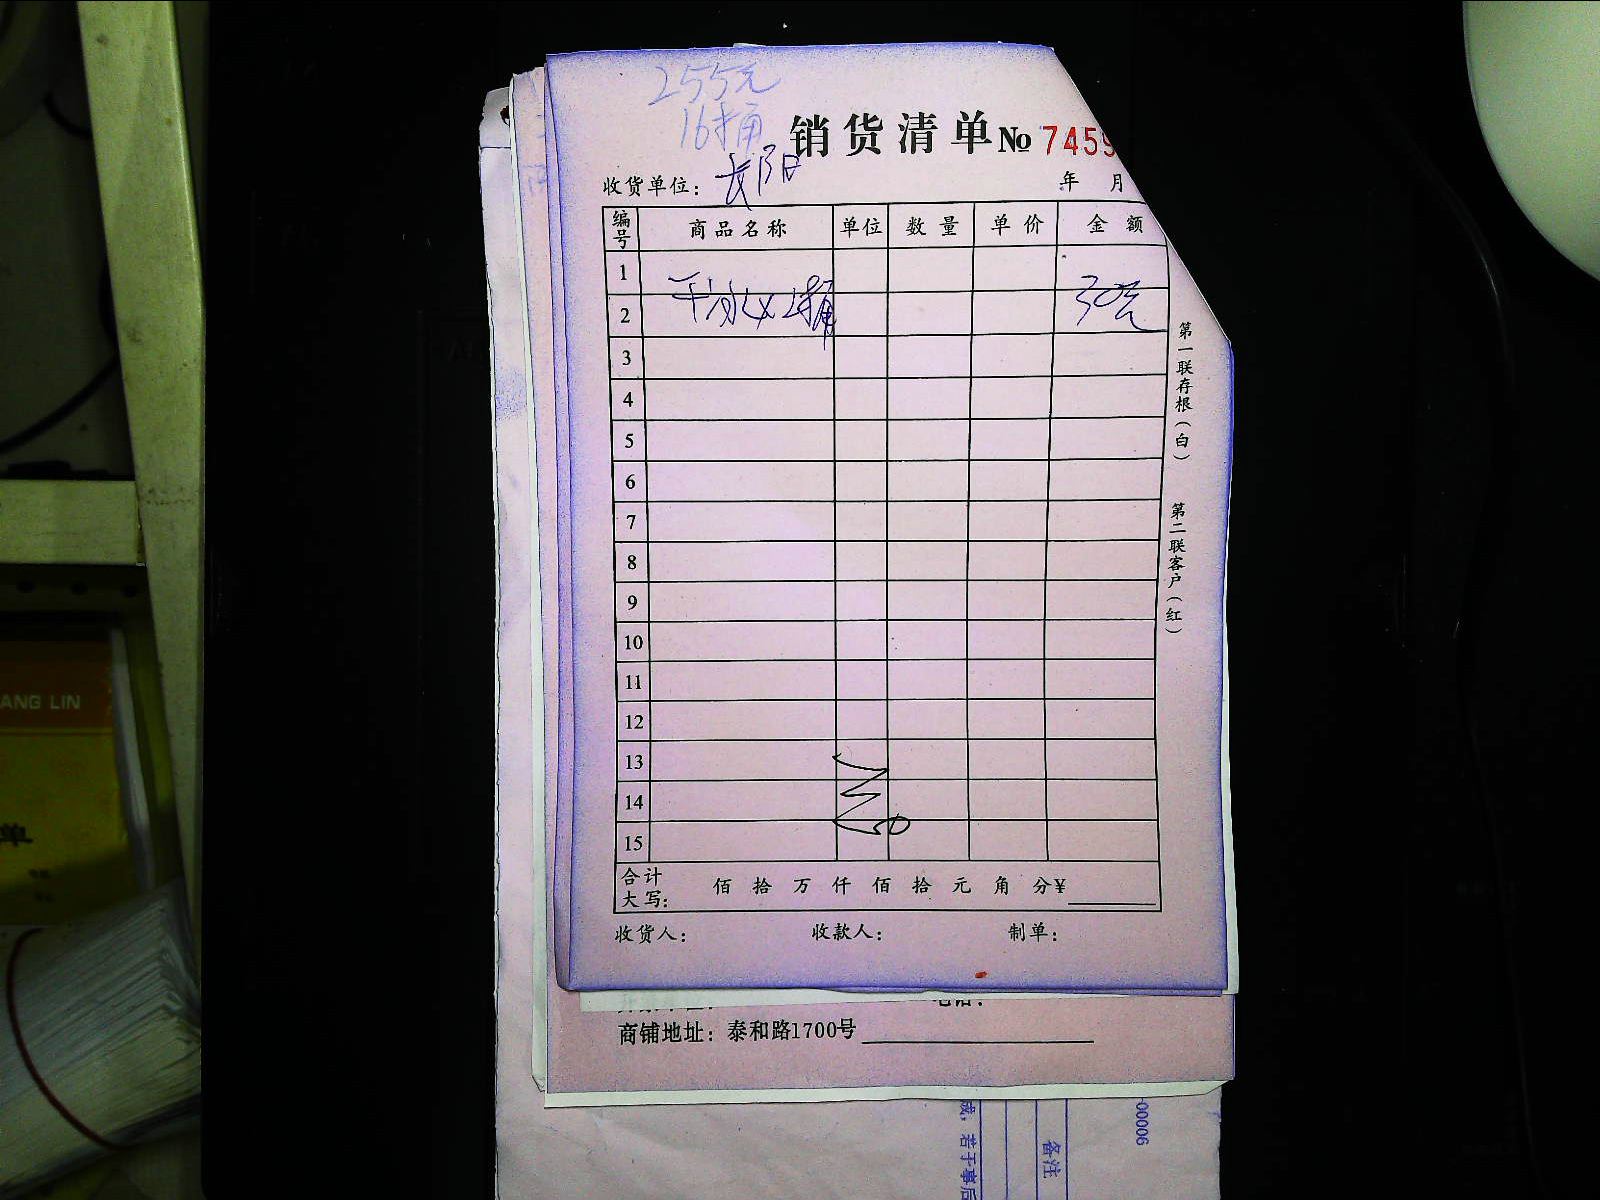 255元
16桶
销货清单 № 745
收货单位: 长阳
年 月
编号 商品名称 单位 数量 单价 金额
1
2 30元
3
4
5
6
7
8
9
10
11
12
13
14
15
合计大写: 佰 拾 万 仟 佰 拾 元 角 分 ¥
收货人: 收款人: 制单:
第一联存根(白)
第二联客户(红)
商铺地址: 泰和路1700号
-00006
备注
成, 若于事后
ANG LIN
单